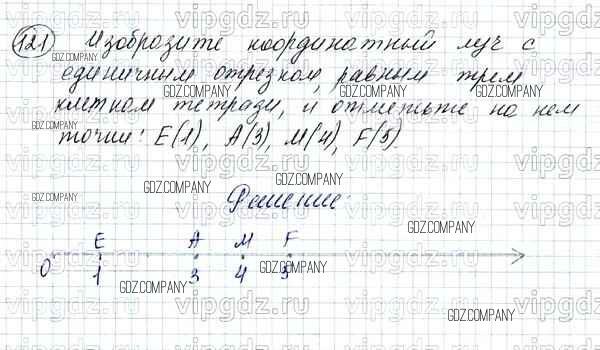 121 Изобразите координатный луч с
единичным отрезком, равным трем
клеткам тетради, и отметьте на нем
точки: E(1), A(3), M(4), F(5).
Решение:
E A M F
0 1 3 4 5
GDZ.COMPANY
vipgdz.ru